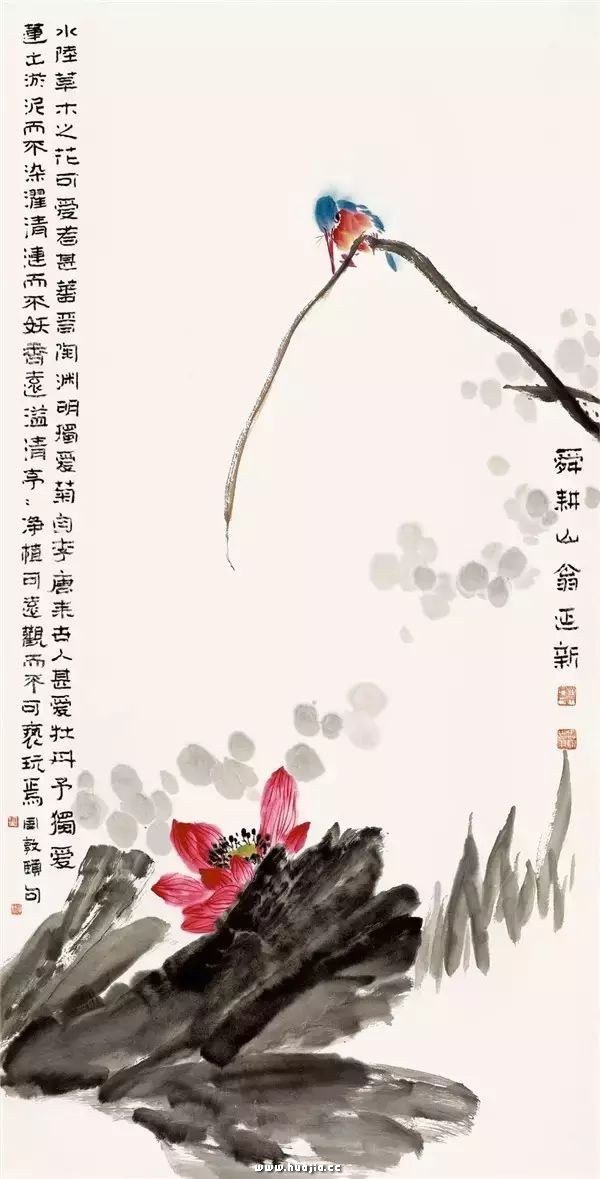 舜耕山翁延新
水陸草木之花可愛者甚蕃晉陶淵明獨愛菊自李唐來古人甚愛牡丹予獨愛
蓮出淤泥而不染濯清漣而不妖香遠溢清亭〻净植可遠觀而不可褻玩焉
周敦頤句
www.huajia.cc